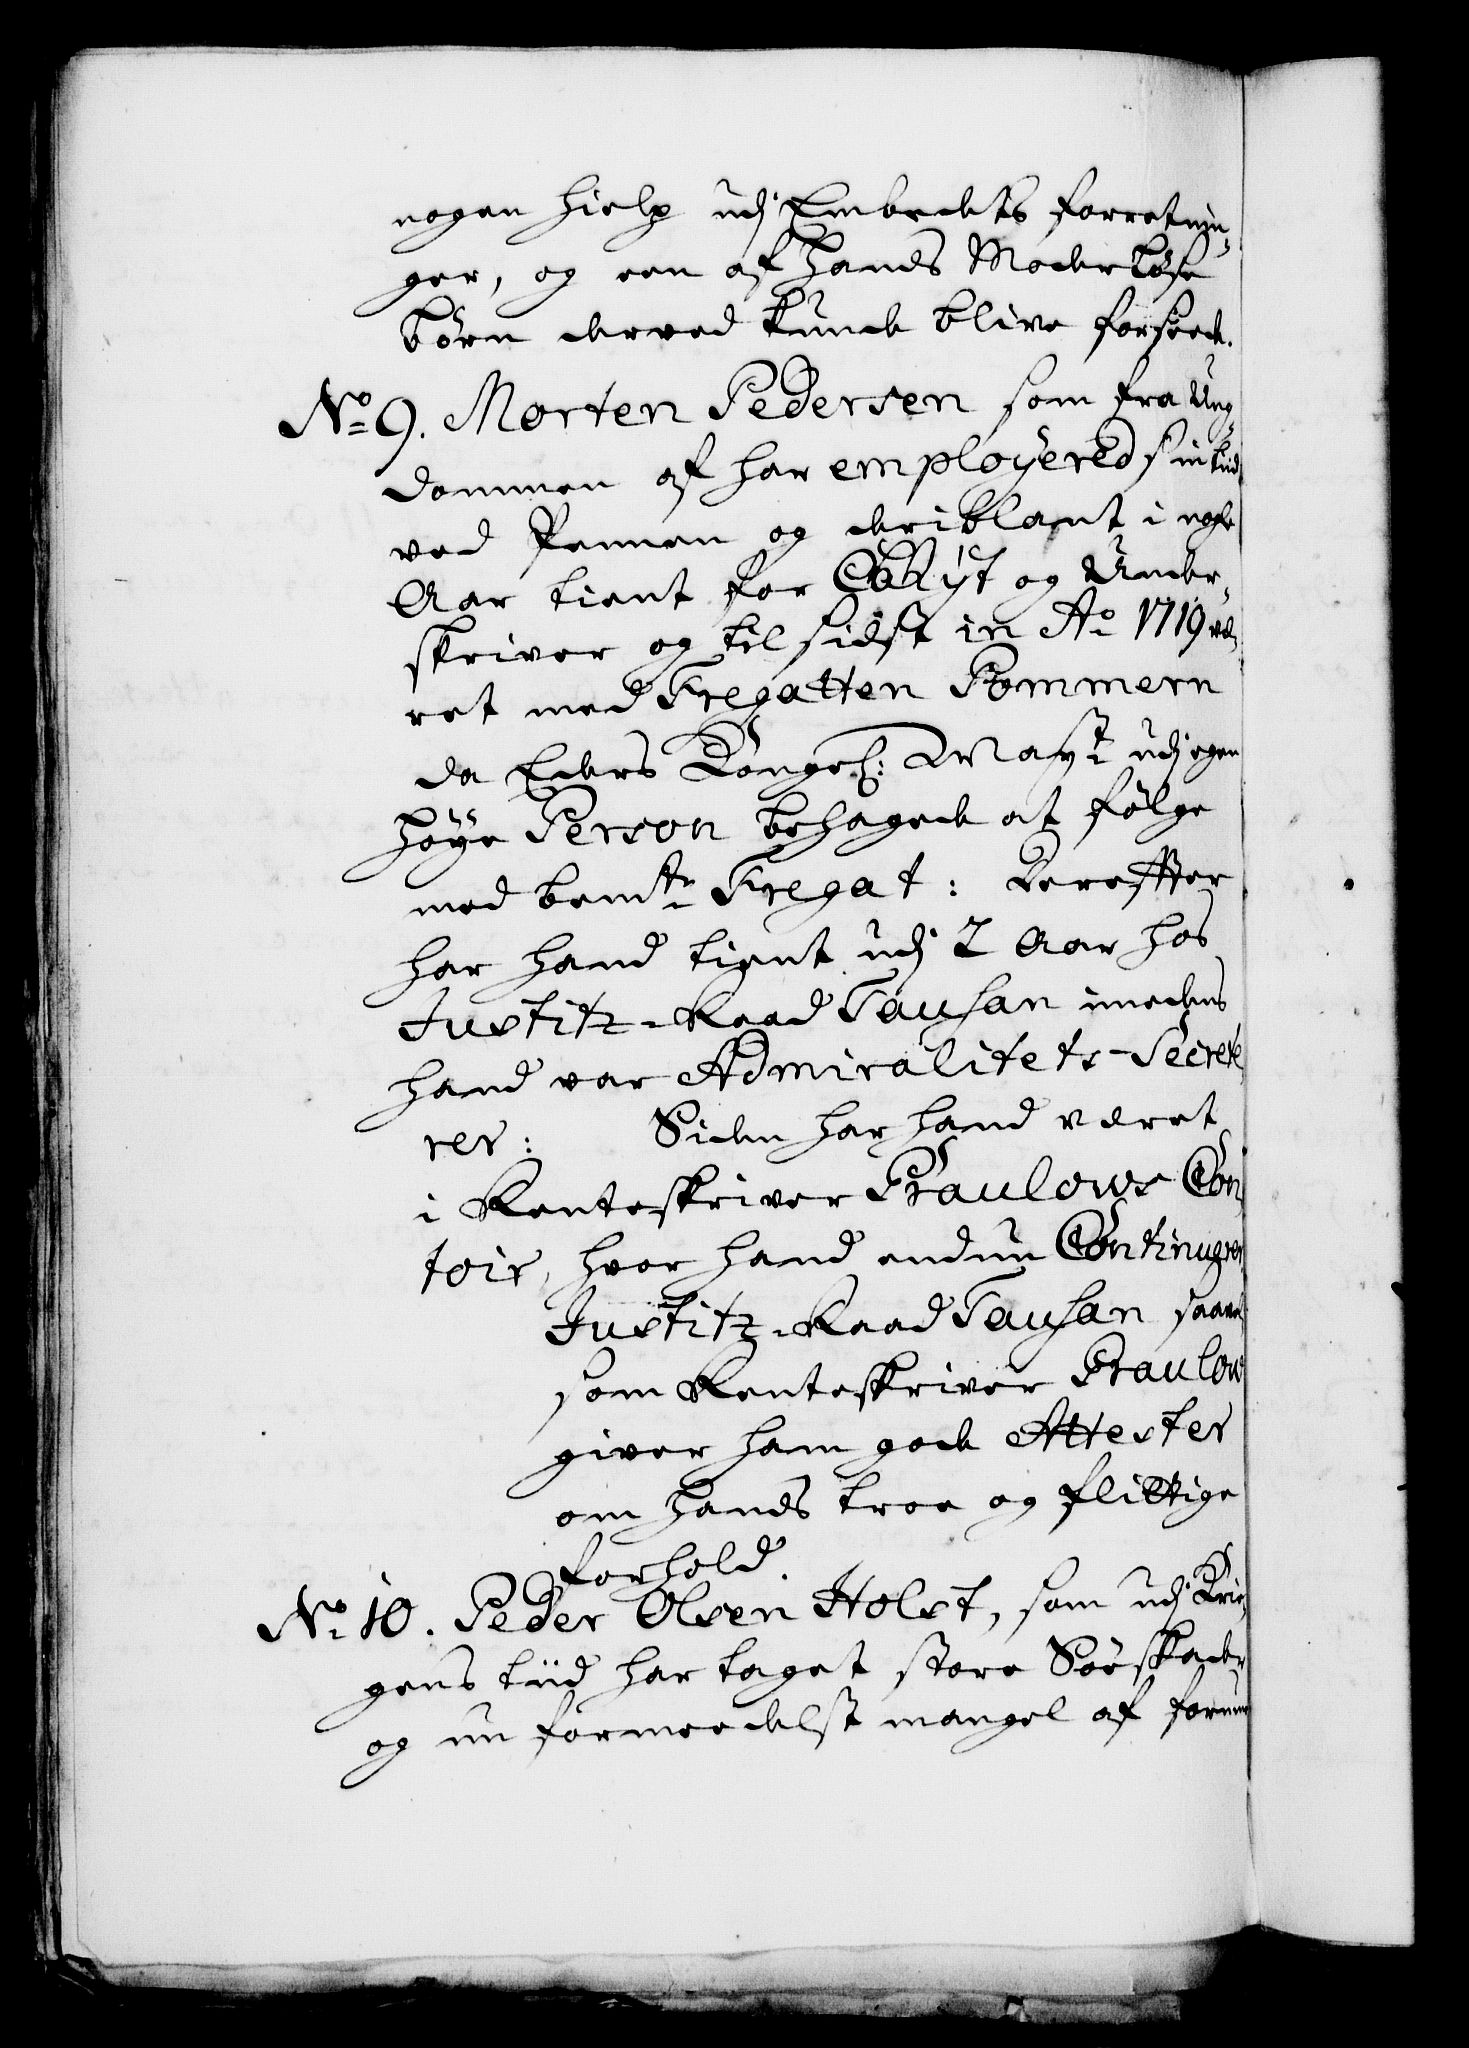 nogen hielp udj Embedets forretnin-
ger, og een af hands Moderløse
børn derved kunde blive forseed.
No 9. Morten Pedersen som fra Ung-
dommen af har employered sin tiid
ved Pennen og deriblant i nogle
Aar tient for Copiist og Under-
skriver og til sidst in Ao 1719 væ-
ret med Fregatten Pommern
da Eders Kongel: Mayt udj egen
høye Person behagede at følge
med bemte Fregat: Dereffter
har hand tient udj 2 Aar hos
Justitz-Raad Tausan imedens
hand var Admiralitets-Secrete
rer: Siden har hand været
i Renteskriver Paulows Con
toir, hvor hand endnu Continuerer
Justitz-Raad Tausan saavel
som Renteskriver Paulow
giver ham gode Attester
om hands troe og flittige
forhold
No 10. Peder Olsen Holst, som udj Krie-
gens tiid har taget store Søeskader
og nu formedelst mangel af